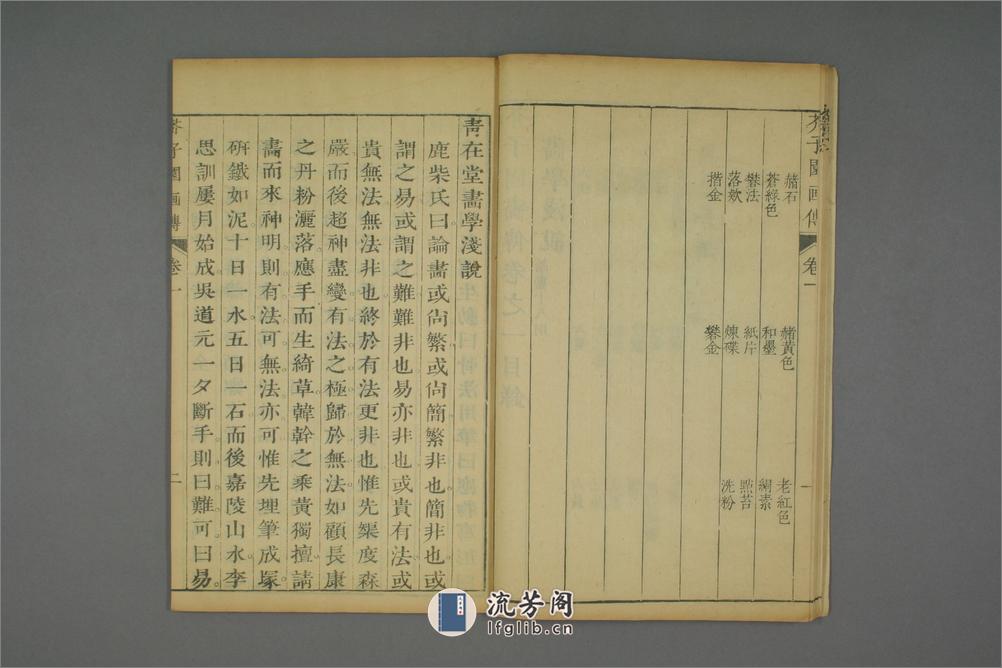 芥子園画傳
卷一
赭石　赭黃色　老紅色
蒼綠色　和墨　絹素
礬法　紙片　點苔
落欵　煉碟　洗粉
揩金　礬金
一
靑在堂畫學淺說
鹿柴氏曰論畫或尙繁或尙簡繁非也簡非也或
謂之易或謂之難難非也易亦非也或貴有法或
貴無法無法非也終於有法更非也惟先榘度森
嚴而後超神盡變有法之極歸於無法如顧長康
之丹粉灑落應手而生綺草韓幹之乘黃獨擅請
畫而來神明則有法可無法亦可惟先埋筆成塚
硏鐵如泥十日一水五日一石而後嘉陵山水李
思訓屢月始成吳道元一夕斷手則曰難可曰易
芥子園画傳
卷一
二
流芳阁
lfglib.cn